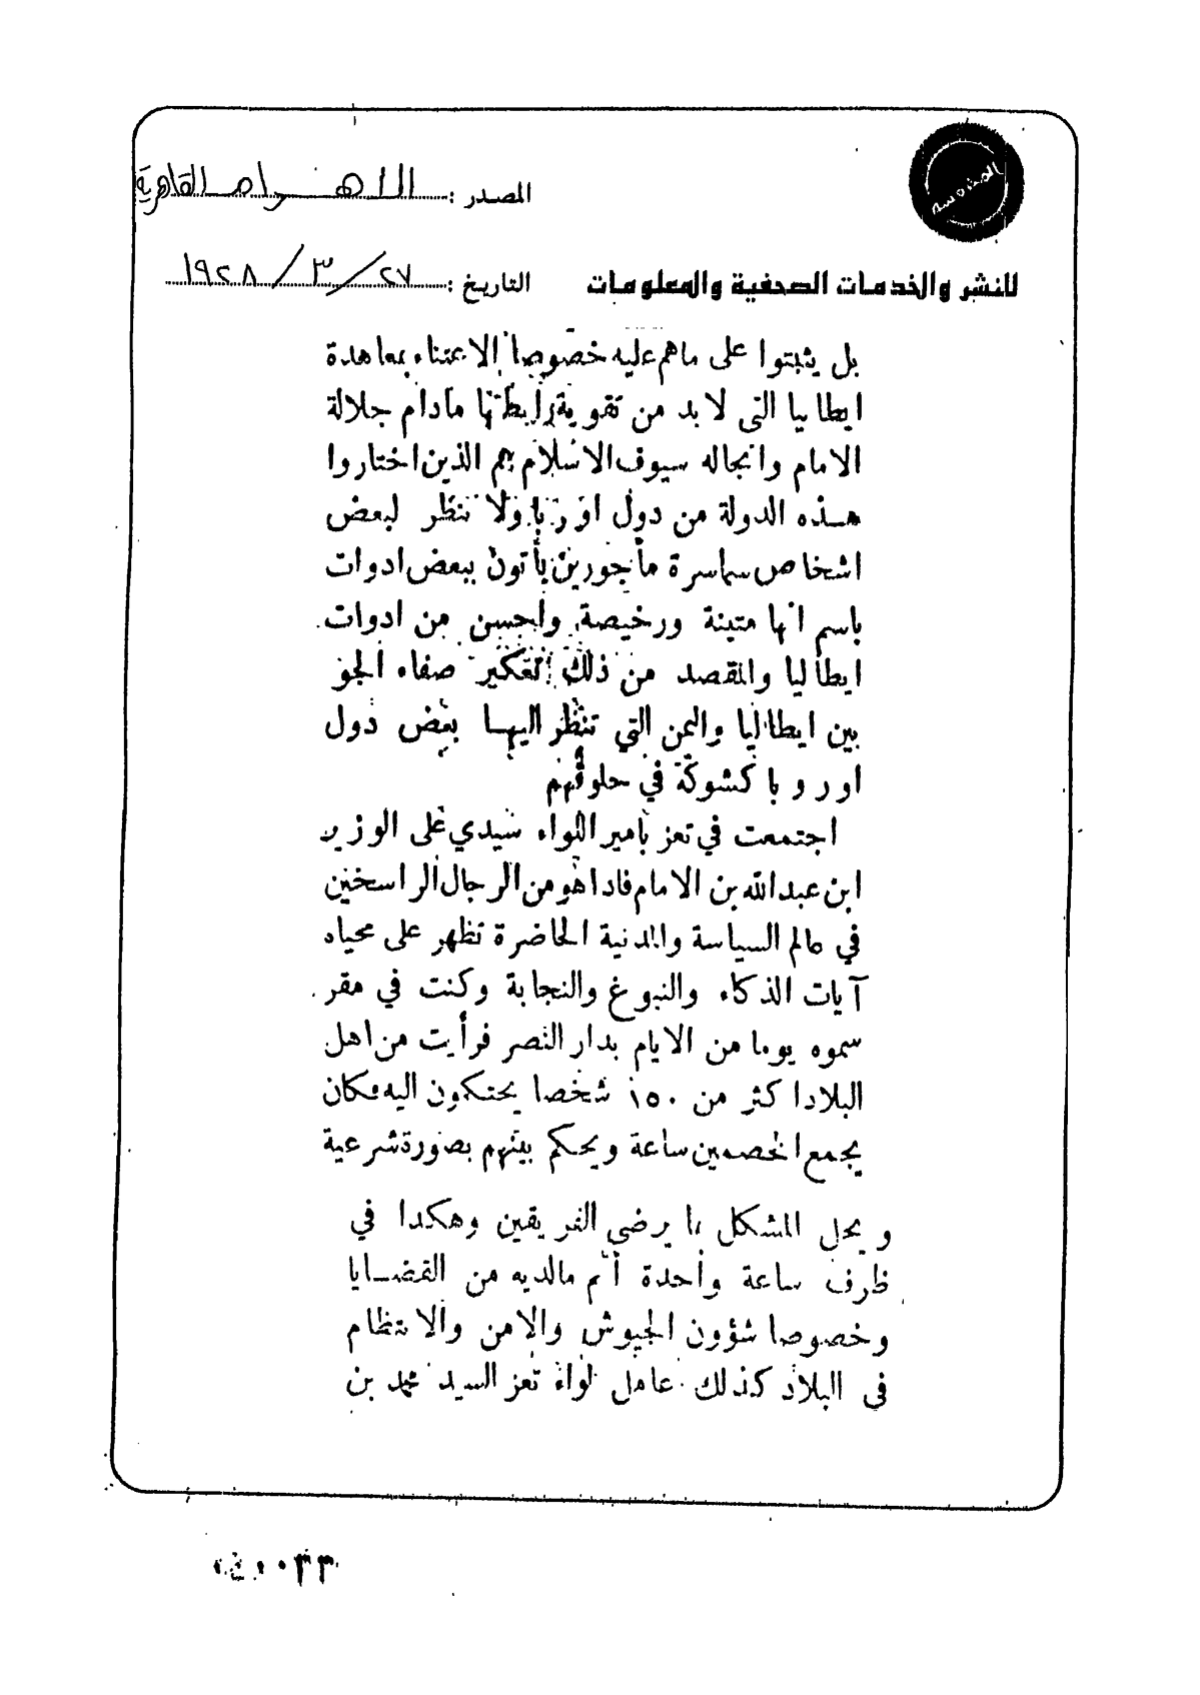 المحروسه
المصدر : الاهرام القاهرية
للنشر والخدمات الصحفية والمعلومات
التاريخ : ٢٧ / ٣ / ١٩٢٨
بل يثبتوا على ماهم عليه خصوصا الاعتناء بمعاهدة
ايطاليا التى لا بد من تقوية رابطتها مادام جلالة
الامام وانجاله سيوف الاسلام هم الذين اختاروا
هذه الدولة من دول اوربا ولا ننظر لبعض
اشخاص سماسرة مأجورين يأتون ببعض ادوات
باسم انها متينة ورخيصة واحسن من ادوات
ايطاليا والمقصد من ذلك تعكير صفاء الجو
بين ايطاليا واليمن التي تنظر اليها بعض دول
اوروبا كشوكة في حلوقهم
اجتمعت في تعز بامير اللواء سيدي على الوزير
ابن عبد الله بن الامام فاذا هو من الرجال الراسخين
في عالم السياسة والمدنية الحاضرة تظهر على محياه
آيات الذكاء والنبوغ والنجابة وكنت في مقر
سموه يوما من الايام بدار النصر فرأيت من اهل
البلاد اكثر من ١٥٠ شخصا يحتكمون اليه فكان
يجمع الخصمين ساعة ويحكم بينهم بصورة شرعية
ويحل المشكل بما يرضي الفريقين وهكذا في
ظرف ساعة واحدة أتم مالديه من القضايا
وخصوصا شؤون الجيوش والامن والانتظام
في البلاد كذلك عامل لواء تعز السيد محمد بن